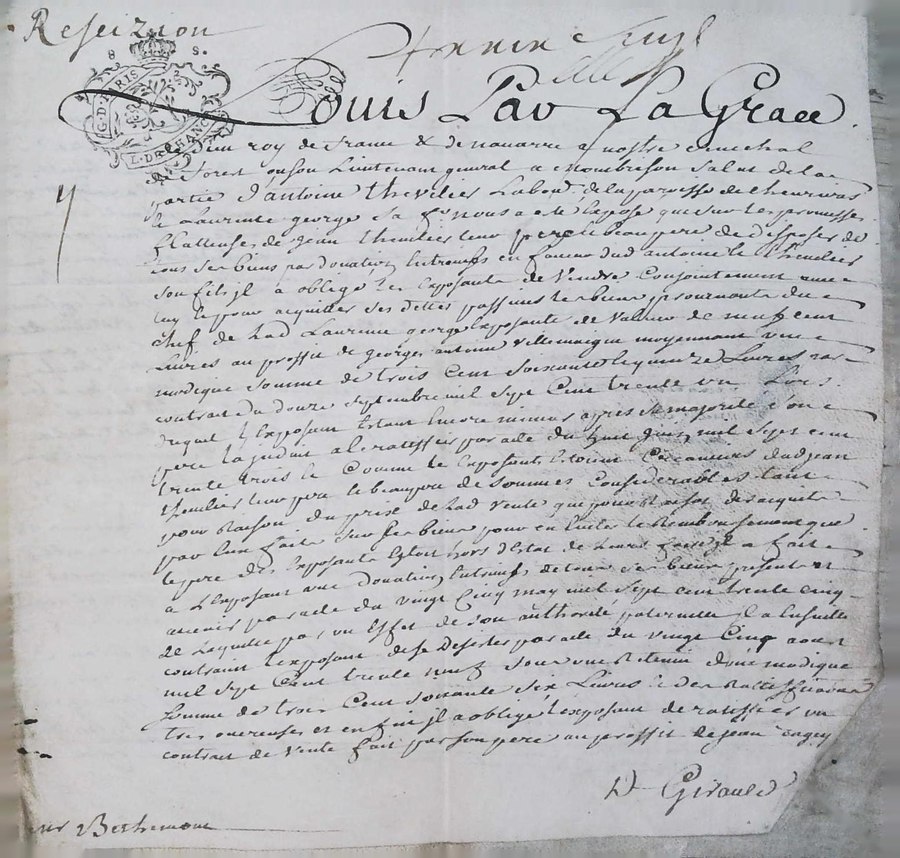 Reseizion
8 S.
G. D. PARIS
L. DE FRANCE
Louis Par La Grace
Dieu roy de france & de navarre a nostre senechal
de forest ou son Lieutenant general a Montbrison Salut de la
partie d'antoine Thevilier Labour de la paroisse de
& Laurence george sa fe nous a eté Exposé que sur les promesses
flatteuses de jean Thevilier leur pere & beau pere de disposer de
tous ses biens par donation Entrevifs en faveur dud antoine Thevilier
son fils jl a obligé les Exposants de Vendre Conjointement avec
luy & pour acquitter ses dettes passives les biens provenants du
chef de lad Laurence george Exposante de Valeur de neuf cent
Livres au proffit de georges antoine moyennant une
modique somme de trois Cent soixante & quinze Livres par
contrait du douze septembre mil sept Cent trente un Lors
duquel L'Exposant Estant Encore mineur apres sa majorité son
pere la induit a le ratiffier par acte du huit juin mil sept cent
trente trois & Comme les Exposants Etoient Creanciers dud jean
Thevilier leur pere & beaupere de sommes Considerables tant
pour Raison du prix de lad Vente que pour Raison des acquits
par Eux faits sur ses biens pour en Eviter le Remboursement que
le pere des Exposants Estoit hors d'Estat de Leurs faire jl a fait
a L'Exposant une donation Entrevifs de tous ses biens presents et
avenir par acte du vingt Cinq may mil sept cent trente cinq
de Laquelle par un Effet de son authorité paternelle jl a Ensuitte
contraint L'exposant de se desister par acte du vingt Cinq aoust
mil sept Cent trente neuf sous une Retenue d'une modique
somme de trois Cent soixante six Livres & des
tres onereuses et enfin jl a obligé L'exposant de ratiffier un
contrat de Vente fait par son pere au proffit de jean
Girauld